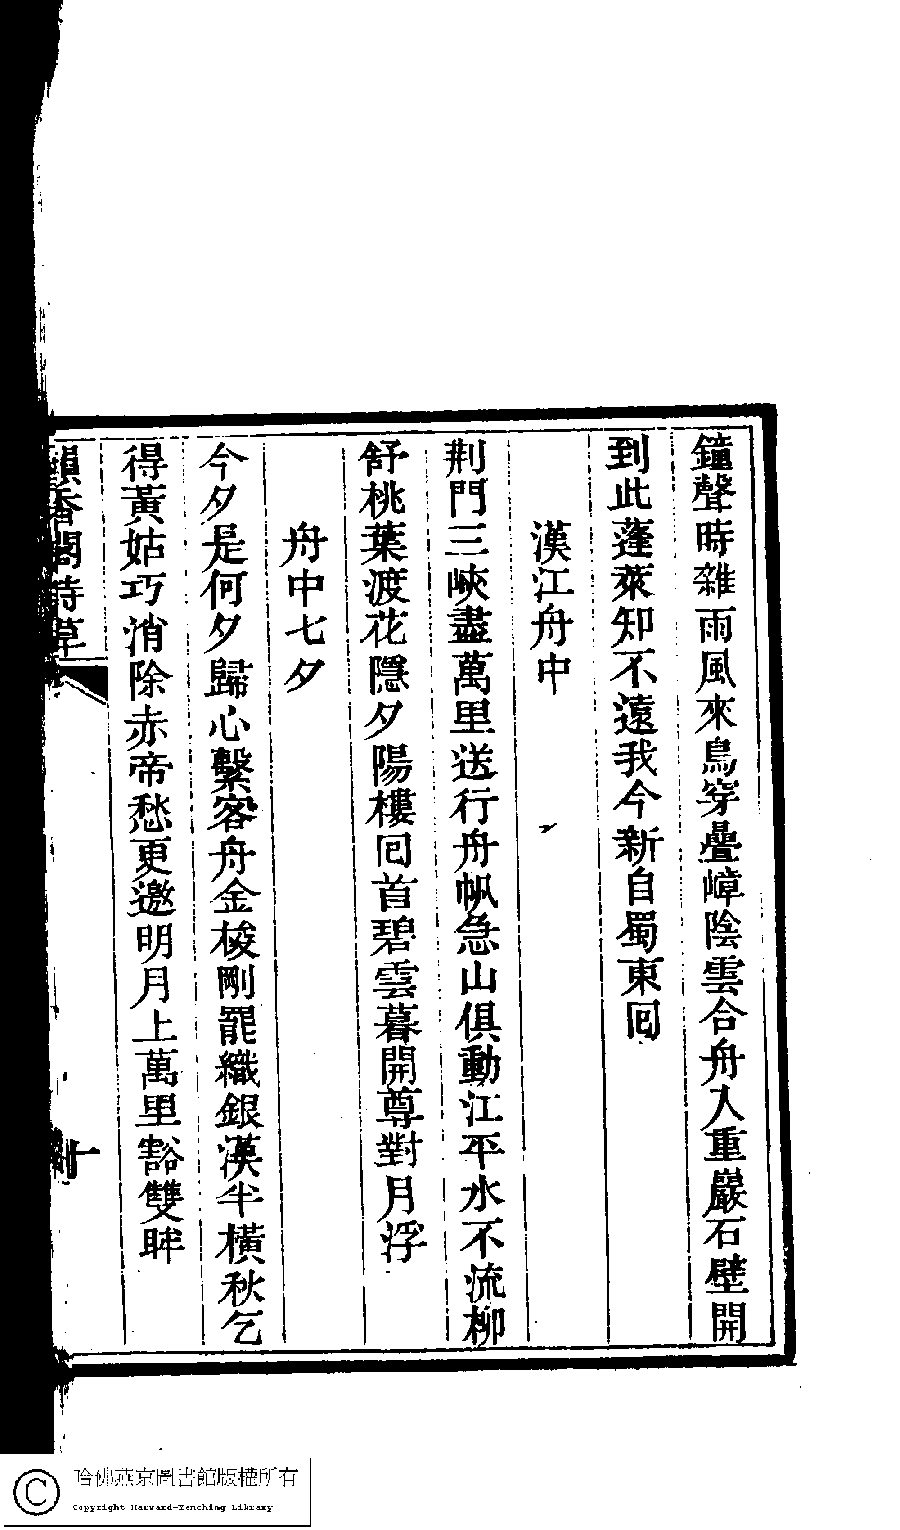 鐘聲時雜雨風來鳥穿疊嶂陰雲合舟入重巖石壁開
到此蓬萊知不遠我今新自蜀東囘
漢江舟中
荆門三峽盡萬里送行舟帆急山俱動江平水不流柳
舒桃葉渡花隱夕陽樓囘首碧雲暮開尊對月浮
舟中七夕
今夕是何夕歸心繫客舟金梭剛罷織銀漢半橫秋乞
得黃姑巧消除赤帝愁更邀明月上萬里豁雙眸
香閣詩草
十
哈佛燕京圖書館版權所有
Copyright Harvard-Yenching Library